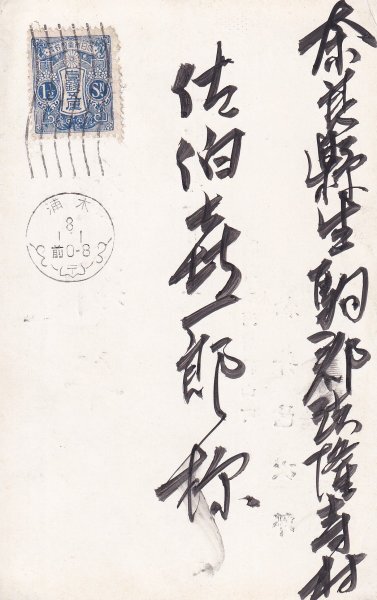 奈良縣生駒郡法隆寺村
佐伯喜一郎様
1½ Sn
木浦
8
1 1
前0-8